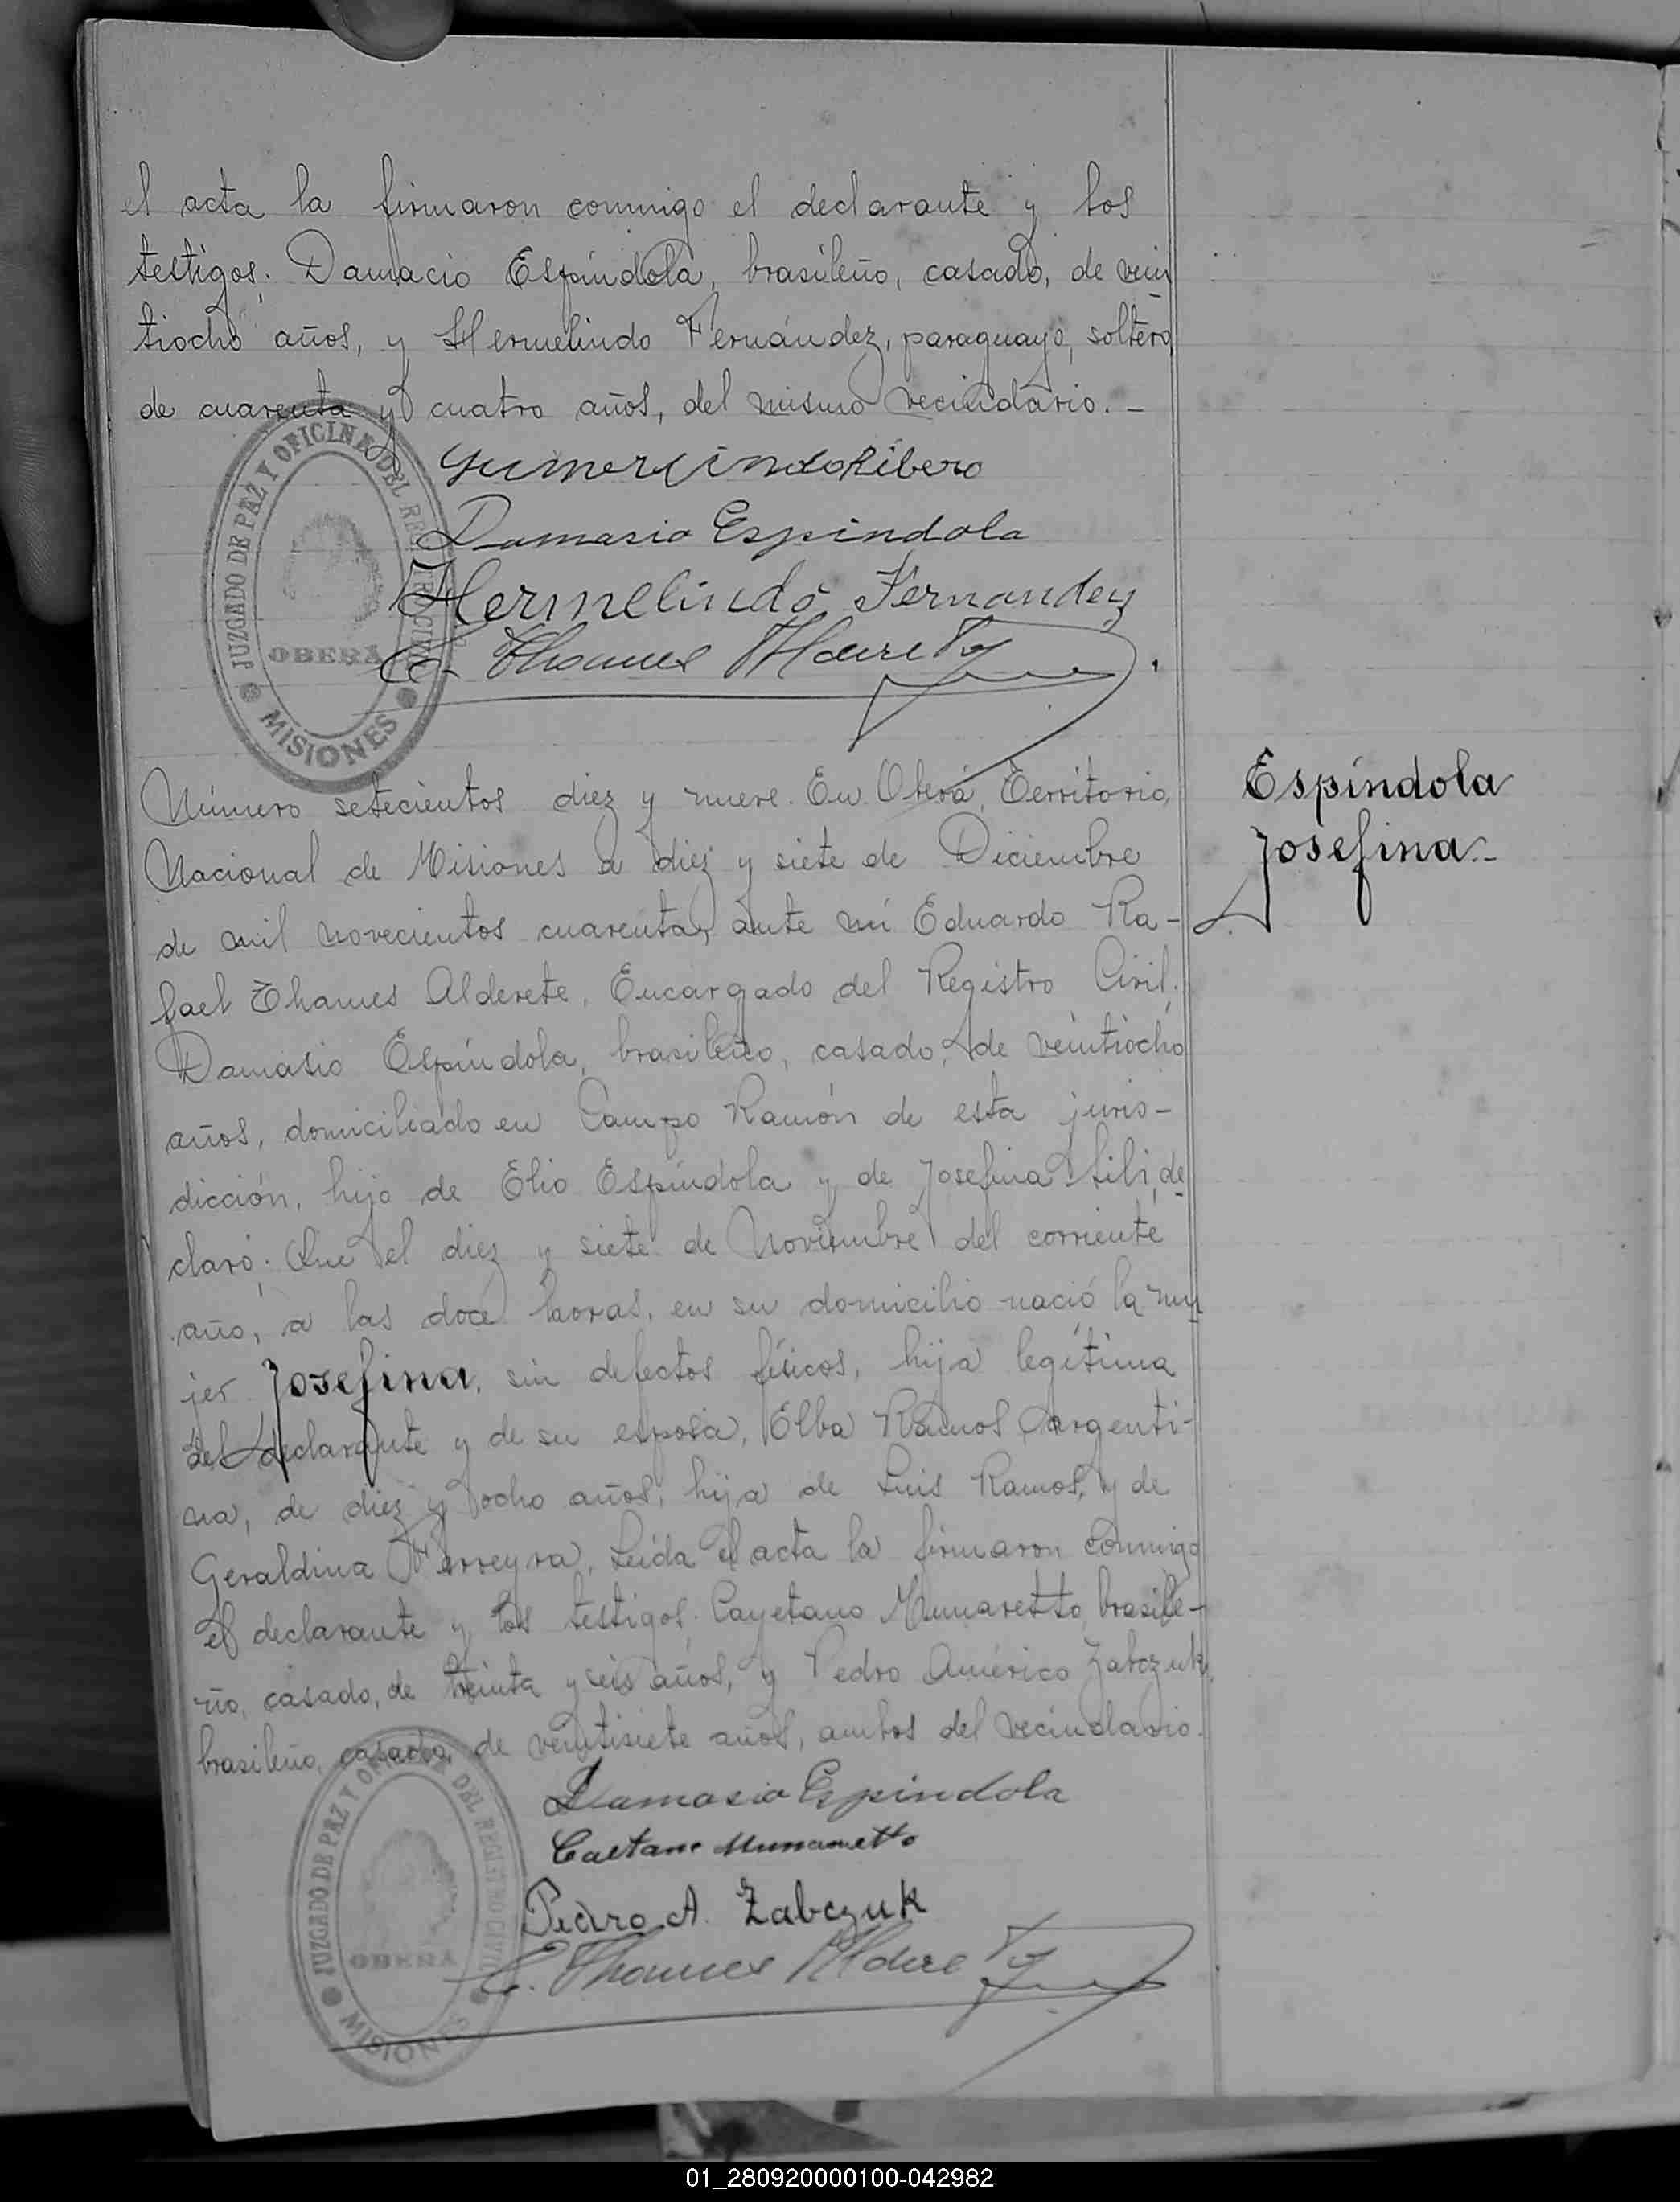 el acta la firmaron conmigo el declarante y los
testigos: Damacio Espíndola, brasileño, casado, de vein
tiocho años, y Hermelindo Fernández, paraguayo, soltero,
de cuarenta y cuatro años, del mismo vecindario. -
Gumersindo Ribero
Damasio Espindola
Hermelindo Fernandez
E. Thames Alderete
JUZGADO DE PAZ Y OFICINA DEL REGISTRO CIVIL
OBERA
MISIONES
Número setecientos diez y nueve. En Oberá, Territorio
Nacional de Misiones a diez y siete de Diciembre
de mil novecientos cuarenta, ante mí Eduardo Ra-
fael Thames Alderete, Encargado del Registro Civil.
Damasio Espíndola, brasileño, casado, de veintiocho
años, domiciliado en Campo Ramón de esta juris-
dicción, hijo de Elio Espíndola y de Josefina de
claró: Que el diez y siete de Noviembre del corriente
año, a las doce horas, en su domicilio nació la mu
jer Josefina, sin defectos físicos, hija legítima
del declarante y de su esposa, Elba Ramos, argenti-
na, de diez y ocho años, hija de Luis Ramos, y de
Geraldina Ferreyra. Leída el acta la firmaron conmigo
el declarante y los testigos: Cayetano Munaretto, brasile-
ño, casado, de treinta y seis años, y Pedro Américo Zabczuk,
brasileño, casado, de veintisiete años, ambos del vecindario.
Espíndola
Josefina.-
Damasio Espindola
Caetano Munaretto
Pedro A. Zabczuk
E. Thames Alderete
JUZGADO DE PAZ Y OFICINA DEL REGISTRO CIVIL
OBERA
MISIONES
01_280920000100-042982